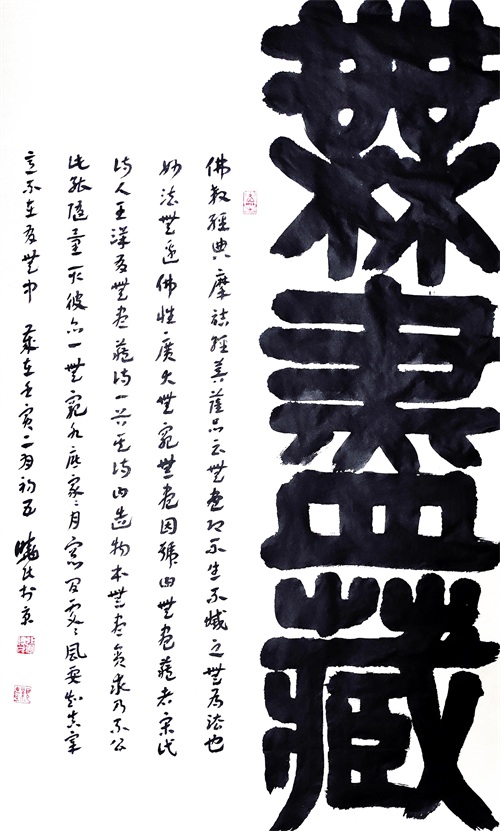 無盡藏
佛教經典摩詰經菩薩品云無盡即不生不滅之無為法也
妙法無邊佛性廣大無窮無盡因號曰無盡藏者宋代
詩人王洋有無盡藏詩一首其詩曰造物本無盡貪求乃不公
此張隨量彼亦一無窮家〻月窗間處〻風要知真宰
意不在有無中 歲在壬寅二月初五 曉民於京